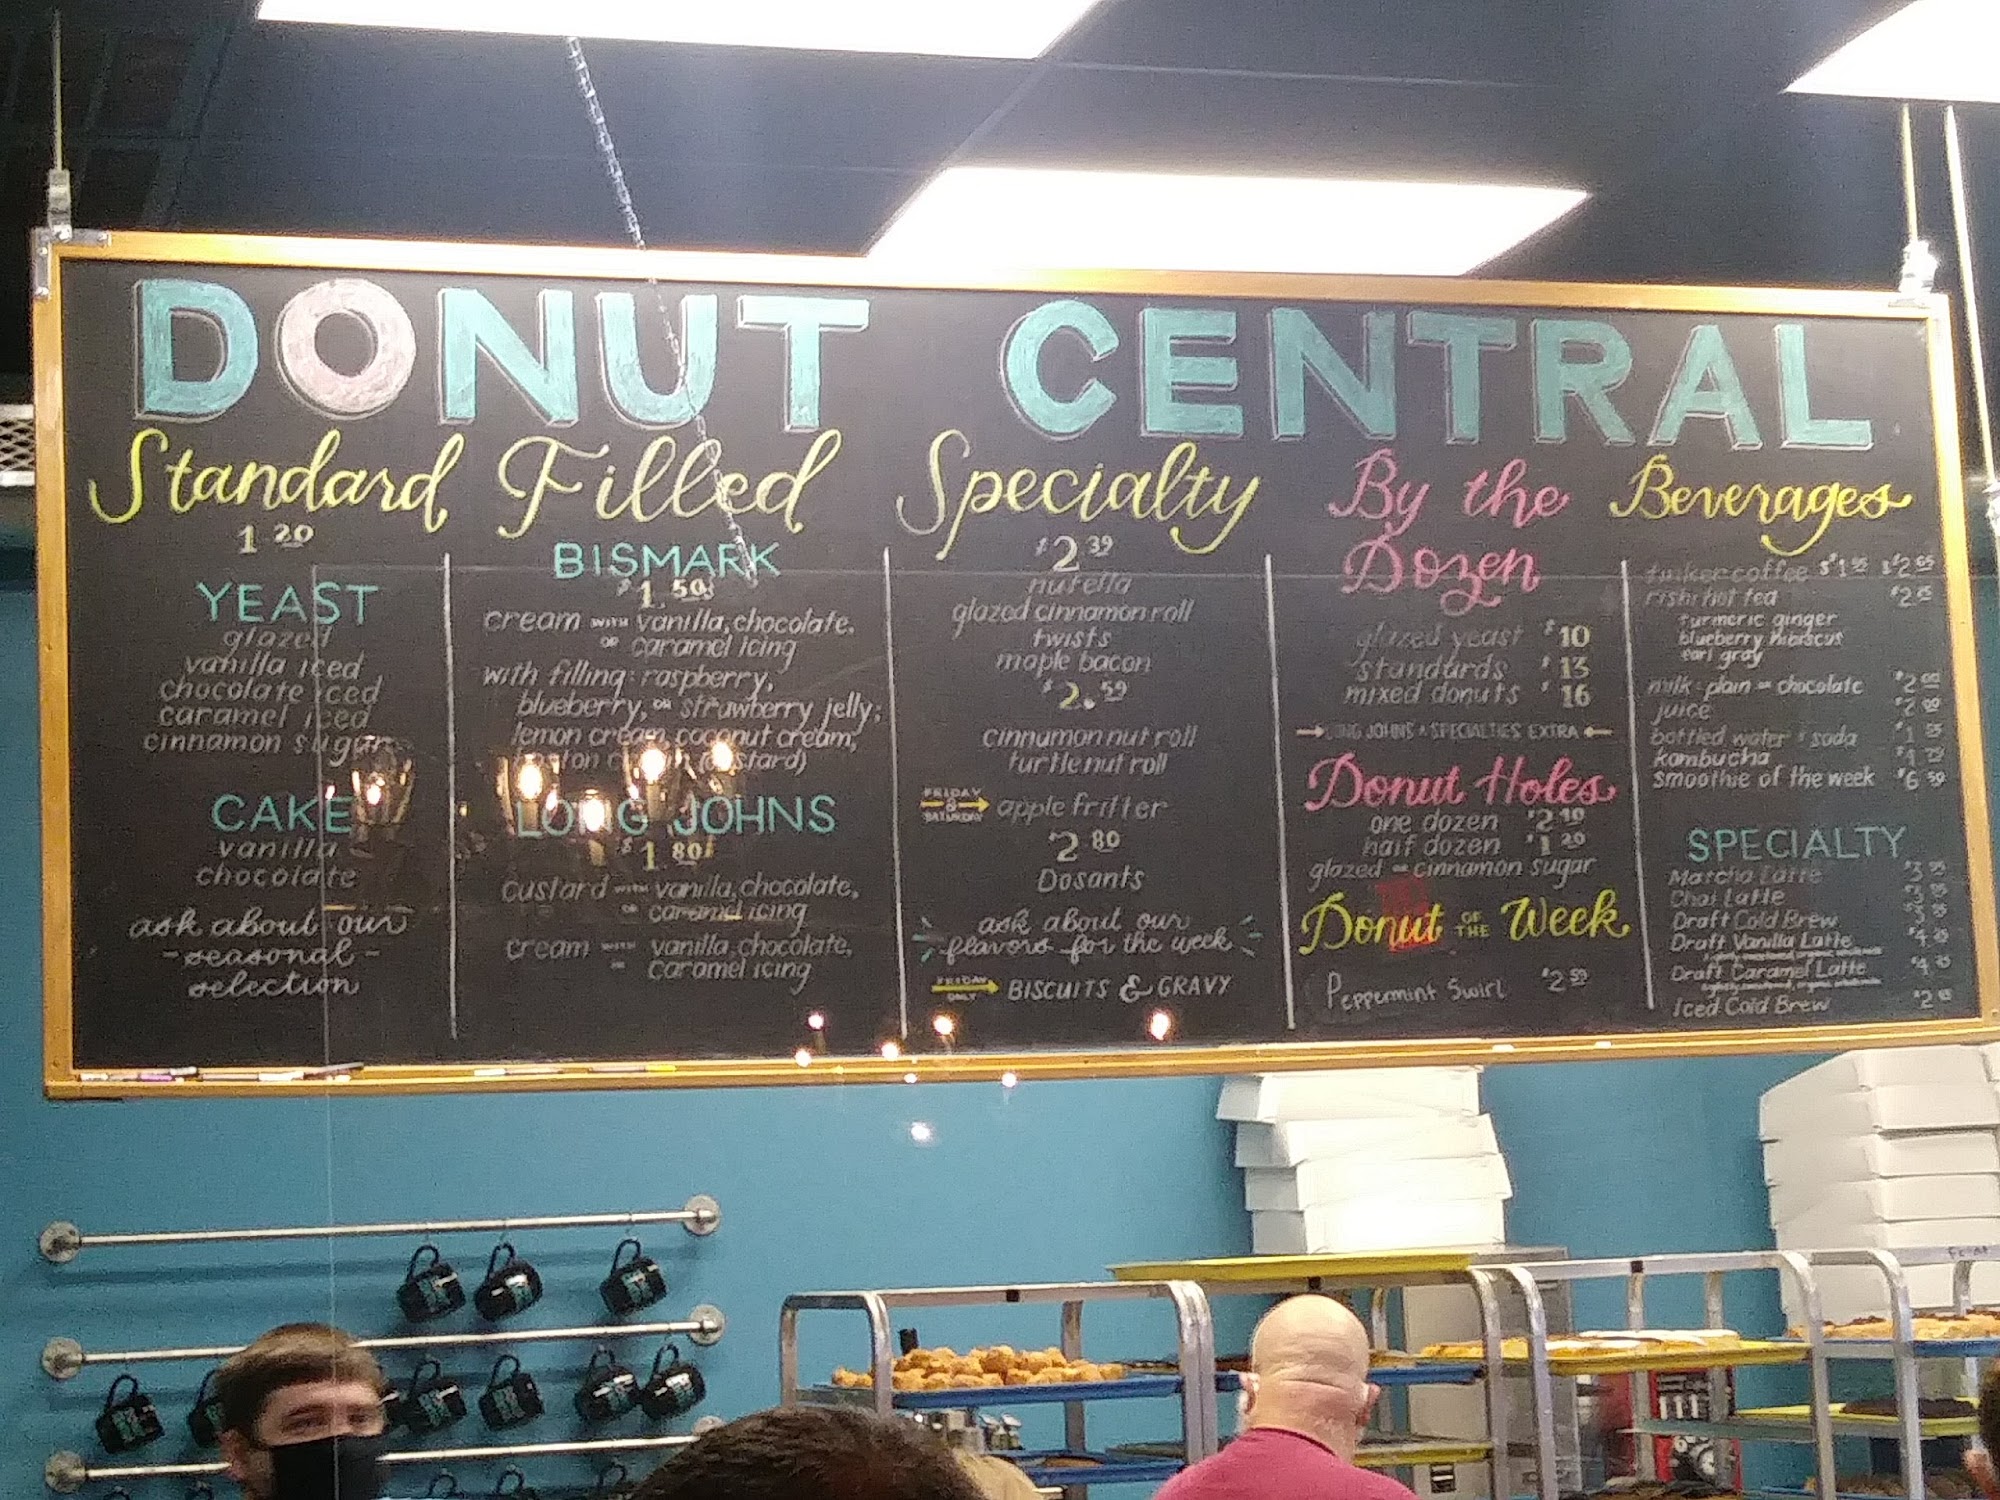 DONUT CENTRAL
Standard
1 20
YEAST
glazed
vanilla iced
chocolate iced
caramel iced
cinnamon sugar
CAKE
vanilla
chocolate
ask about our
-seasonal-
selection
Filled
BISMARK
$1.50
cream with vanilla, chocolate,
or caramel icing
with filling: raspberry,
blueberry, or strawberry jelly;
lemon cream, coconut cream,
(custard)
LONG JOHNS
$1.80
custard with vanilla, chocolate,
or caramel icing
cream with vanilla, chocolate,
or caramel icing
Specialty
$2 39
nutella
glazed cinnamon roll
twists
maple bacon
$2.59
cinnamon nut roll
turtle nut roll
FRIDAY & SATURDAY apple fritter
$2 80
Dosants
ask about our
flavors for the week
FRIDAY ONLY BISCUITS & GRAVY
By the
Dozen
glazed yeast $10
standards $13
mixed donuts $16
LONG JOHNS & SPECIALTIES EXTRA
Donut Holes
one dozen $2 10
half dozen $1 20
glazed or cinnamon sugar
Donut OF THE Week
Peppermint Swirl $2 59
Beverages
tinker coffee $2 65
rishi hot tea
turmeric ginger
blueberry hibiscus
earl gray
milk: plain or chocolate $2 00
juice $2 00
bottled water & soda
kombucha
smoothie of the week $6 50
SPECIALTY
Matcha Latte
Chai Latte
Draft Cold Brew
Draft Vanilla Latte
Draft Caramel Latte
Iced Cold Brew